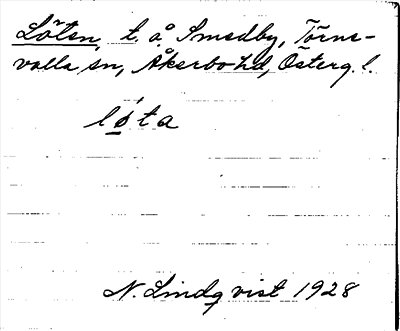 Löten, t. å. Smedby, Törne-
valla sn, Åkerbo hd, Österg. l.
lø̀ta
N. Lindqvist 1928